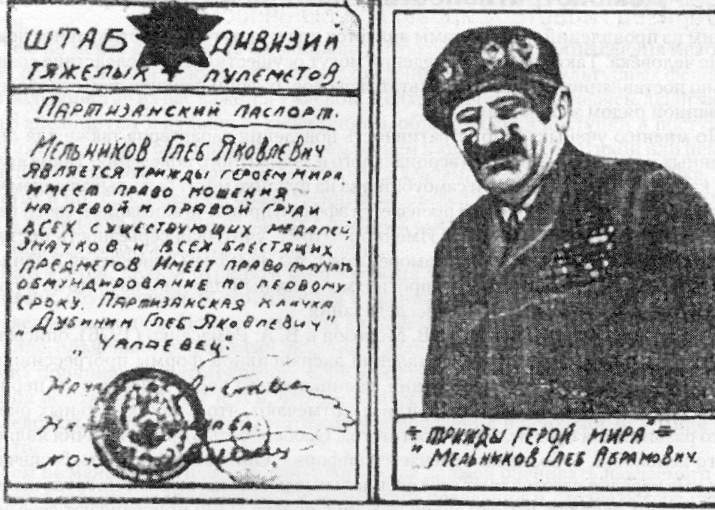 ШТАБ ДИВИЗИИ
ТЯЖЕЛЫХ ПУЛЕМЕТОВ
ПАРТИЗАНСКИЙ ПАСПОРТ.
МЕЛЬНИКОВ ГЛЕБ ЯКОВЛЕВИЧ
ЯВЛЯЕТСЯ ТРИЖДЫ ГЕРОЕМ МИРА
ИМЕЕТ ПРАВО НОШЕНИЯ
НА ЛЕВОЙ И ПРАВОЙ ГРУДИ
ВСЕХ СУЩЕСТВУЮЩИХ МЕДАЛЕЙ,
ЗНАЧКОВ И ВСЕХ БЛЕСТЯЩИХ
ПРЕДМЕТОВ ИМЕЕТ ПРАВО ПОЛУЧАТЬ
ОБМУНДИРОВАНИЕ ПО ПЕРВОМУ
СРОКУ. ПАРТИЗАНСКАЯ КЛИЧКА
"ДУБИНИН ГЛЕБ ЯКОВЛЕВИЧ"
"ЧАПАЕВЕЦ".
"ТРИЖДЫ ГЕРОЙ МИРА"
"МЕЛЬНИКОВ ГЛЕБ АБРАМОВИЧ